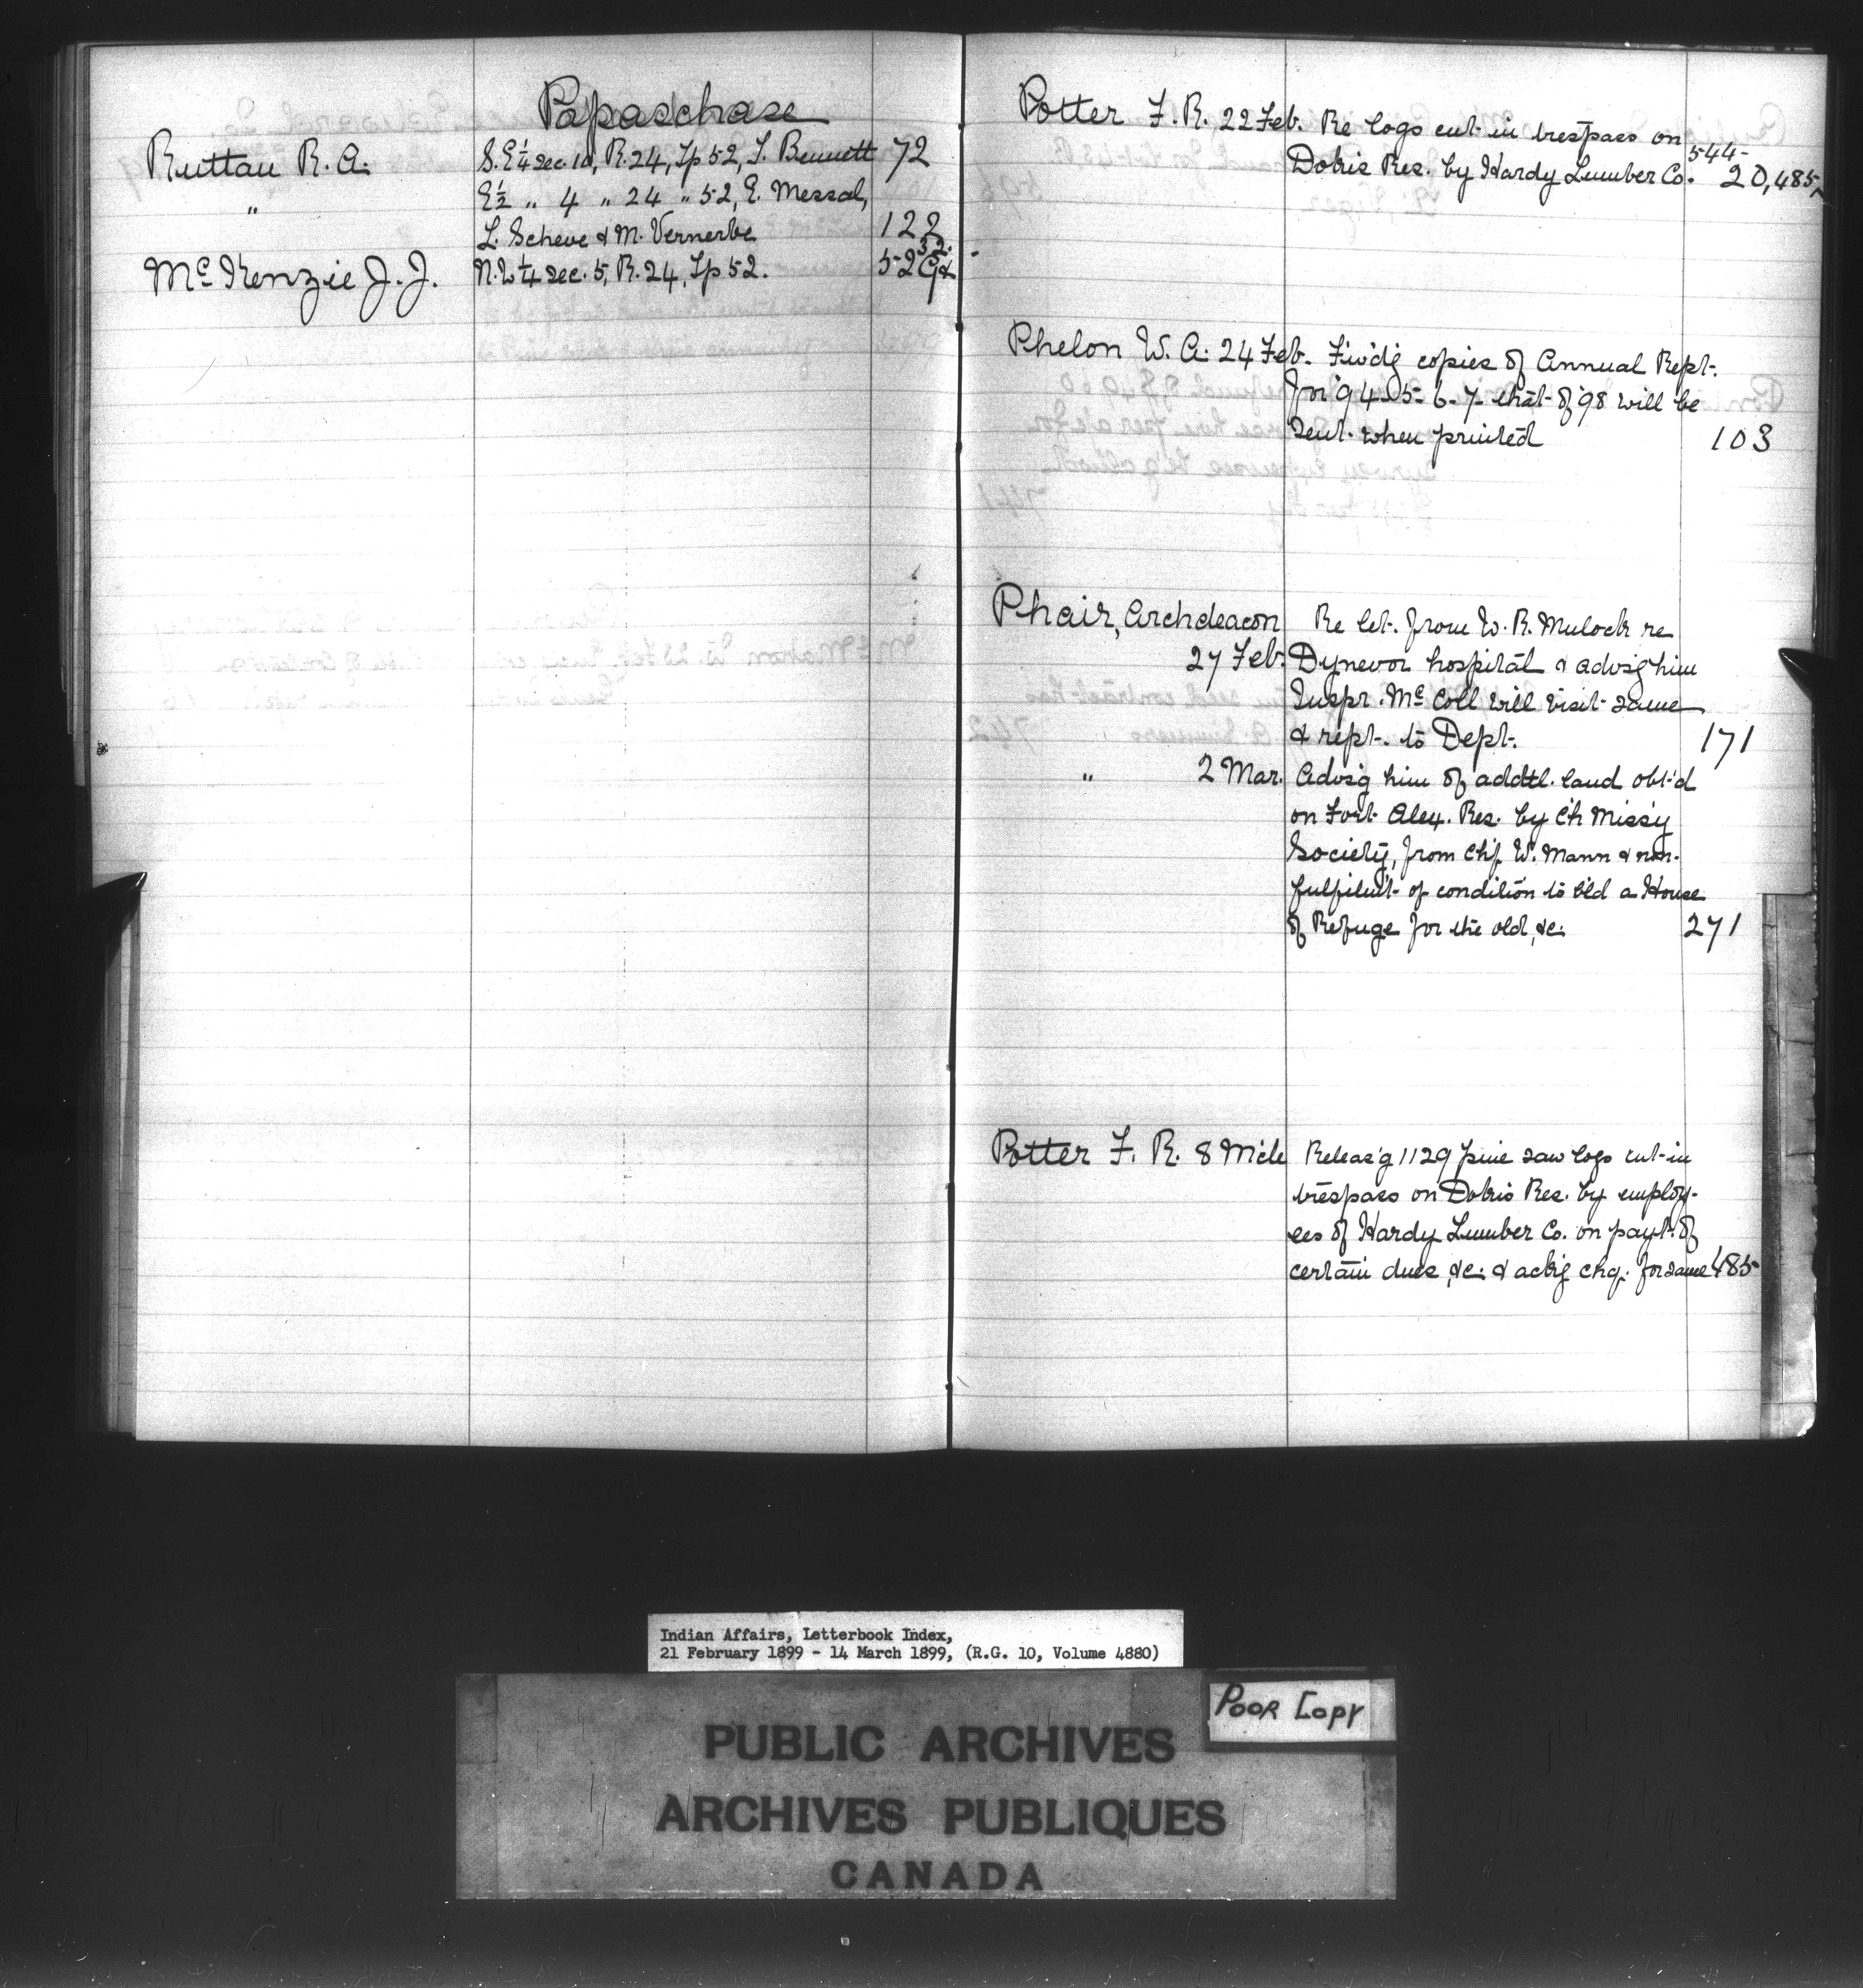 Papaschase
Ruttan R. A. S. E ¼ sec. 10, R. 24, Tp 52, T. Bennett 72
" E ½ " 4 " 24 " 52, E. Messal,
L. Scheve & M. Vernerbe 122
McKenzie J. J. N. W ¼ sec. 5, R. 24, Tp 52. 529
Potter F. R. 22 Feb. Re logs cut in trespass on 544-
Dokis Res. by Hardy Lumber Co. 20,485
Phelon W. A. 24 Feb. Fwd'g copies of Annual Rept.
for '94-5-6-7- that of '98 will be
sent when printed 103
Phair, Archdeacon Re let. from W. R. Mulock re
27 Feb. Dynevor hospital & advsg him
Inspr. McColl will visit same
& rept. to Dept. 171
" 2 Mar. Advs'g him of addtl. land obt'd
on Fort Alex. Res. by Ch Miss'y
Society, from Chf. W. Mann & non-
fulfilmt of condition to b'ld a House
of Refuge for the old, &c. 271
Potter F. R. 8 Mch Releas'g 1129 pine saw logs cut in
trespass on Dokis Res. by employ-
ees of Hardy Lumber Co. on payt. of
certain dues, &c. & ack'g chq. for same 485
Indian Affairs, Letterbook Index,
21 February 1899 - 14 March 1899, (R.G. 10, Volume 4880)
POOR COPY
PUBLIC ARCHIVES
ARCHIVES PUBLIQUES
CANADA